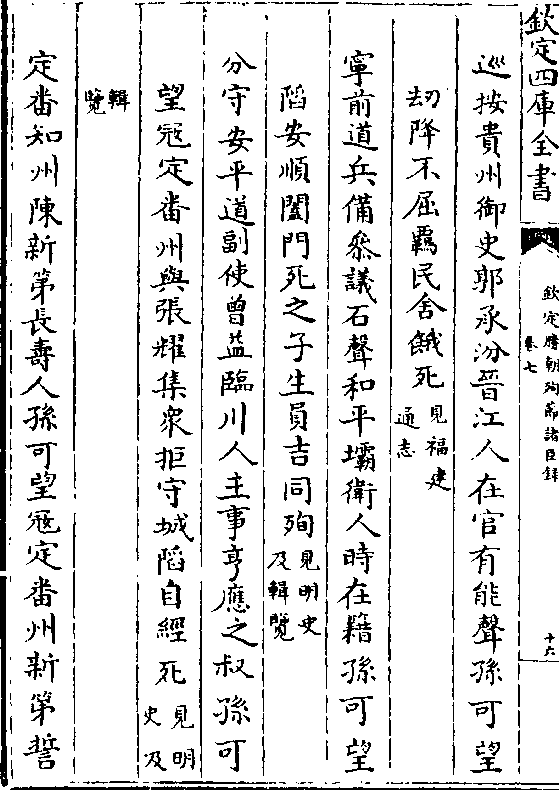 欽定四庫全書
欽定勝朝殉節諸臣錄
卷七
十六
巡按貴州御史郭承汾晉江人在官有能聲孫可望
刼降不屈羈民舍餓死見福建通志
寧前道兵備叅議石聲和平壩衛人時在籍孫可望
陷安順闔門死之子生員吉同殉見明史及輯覽
分守安平道副使曾益臨川人主事亨應之叔孫可
望寇定番州與張耀集衆拒守城陷自經死見明史及
輯覽
定番知州陳新第長壽人孫可望寇定番州新第誓